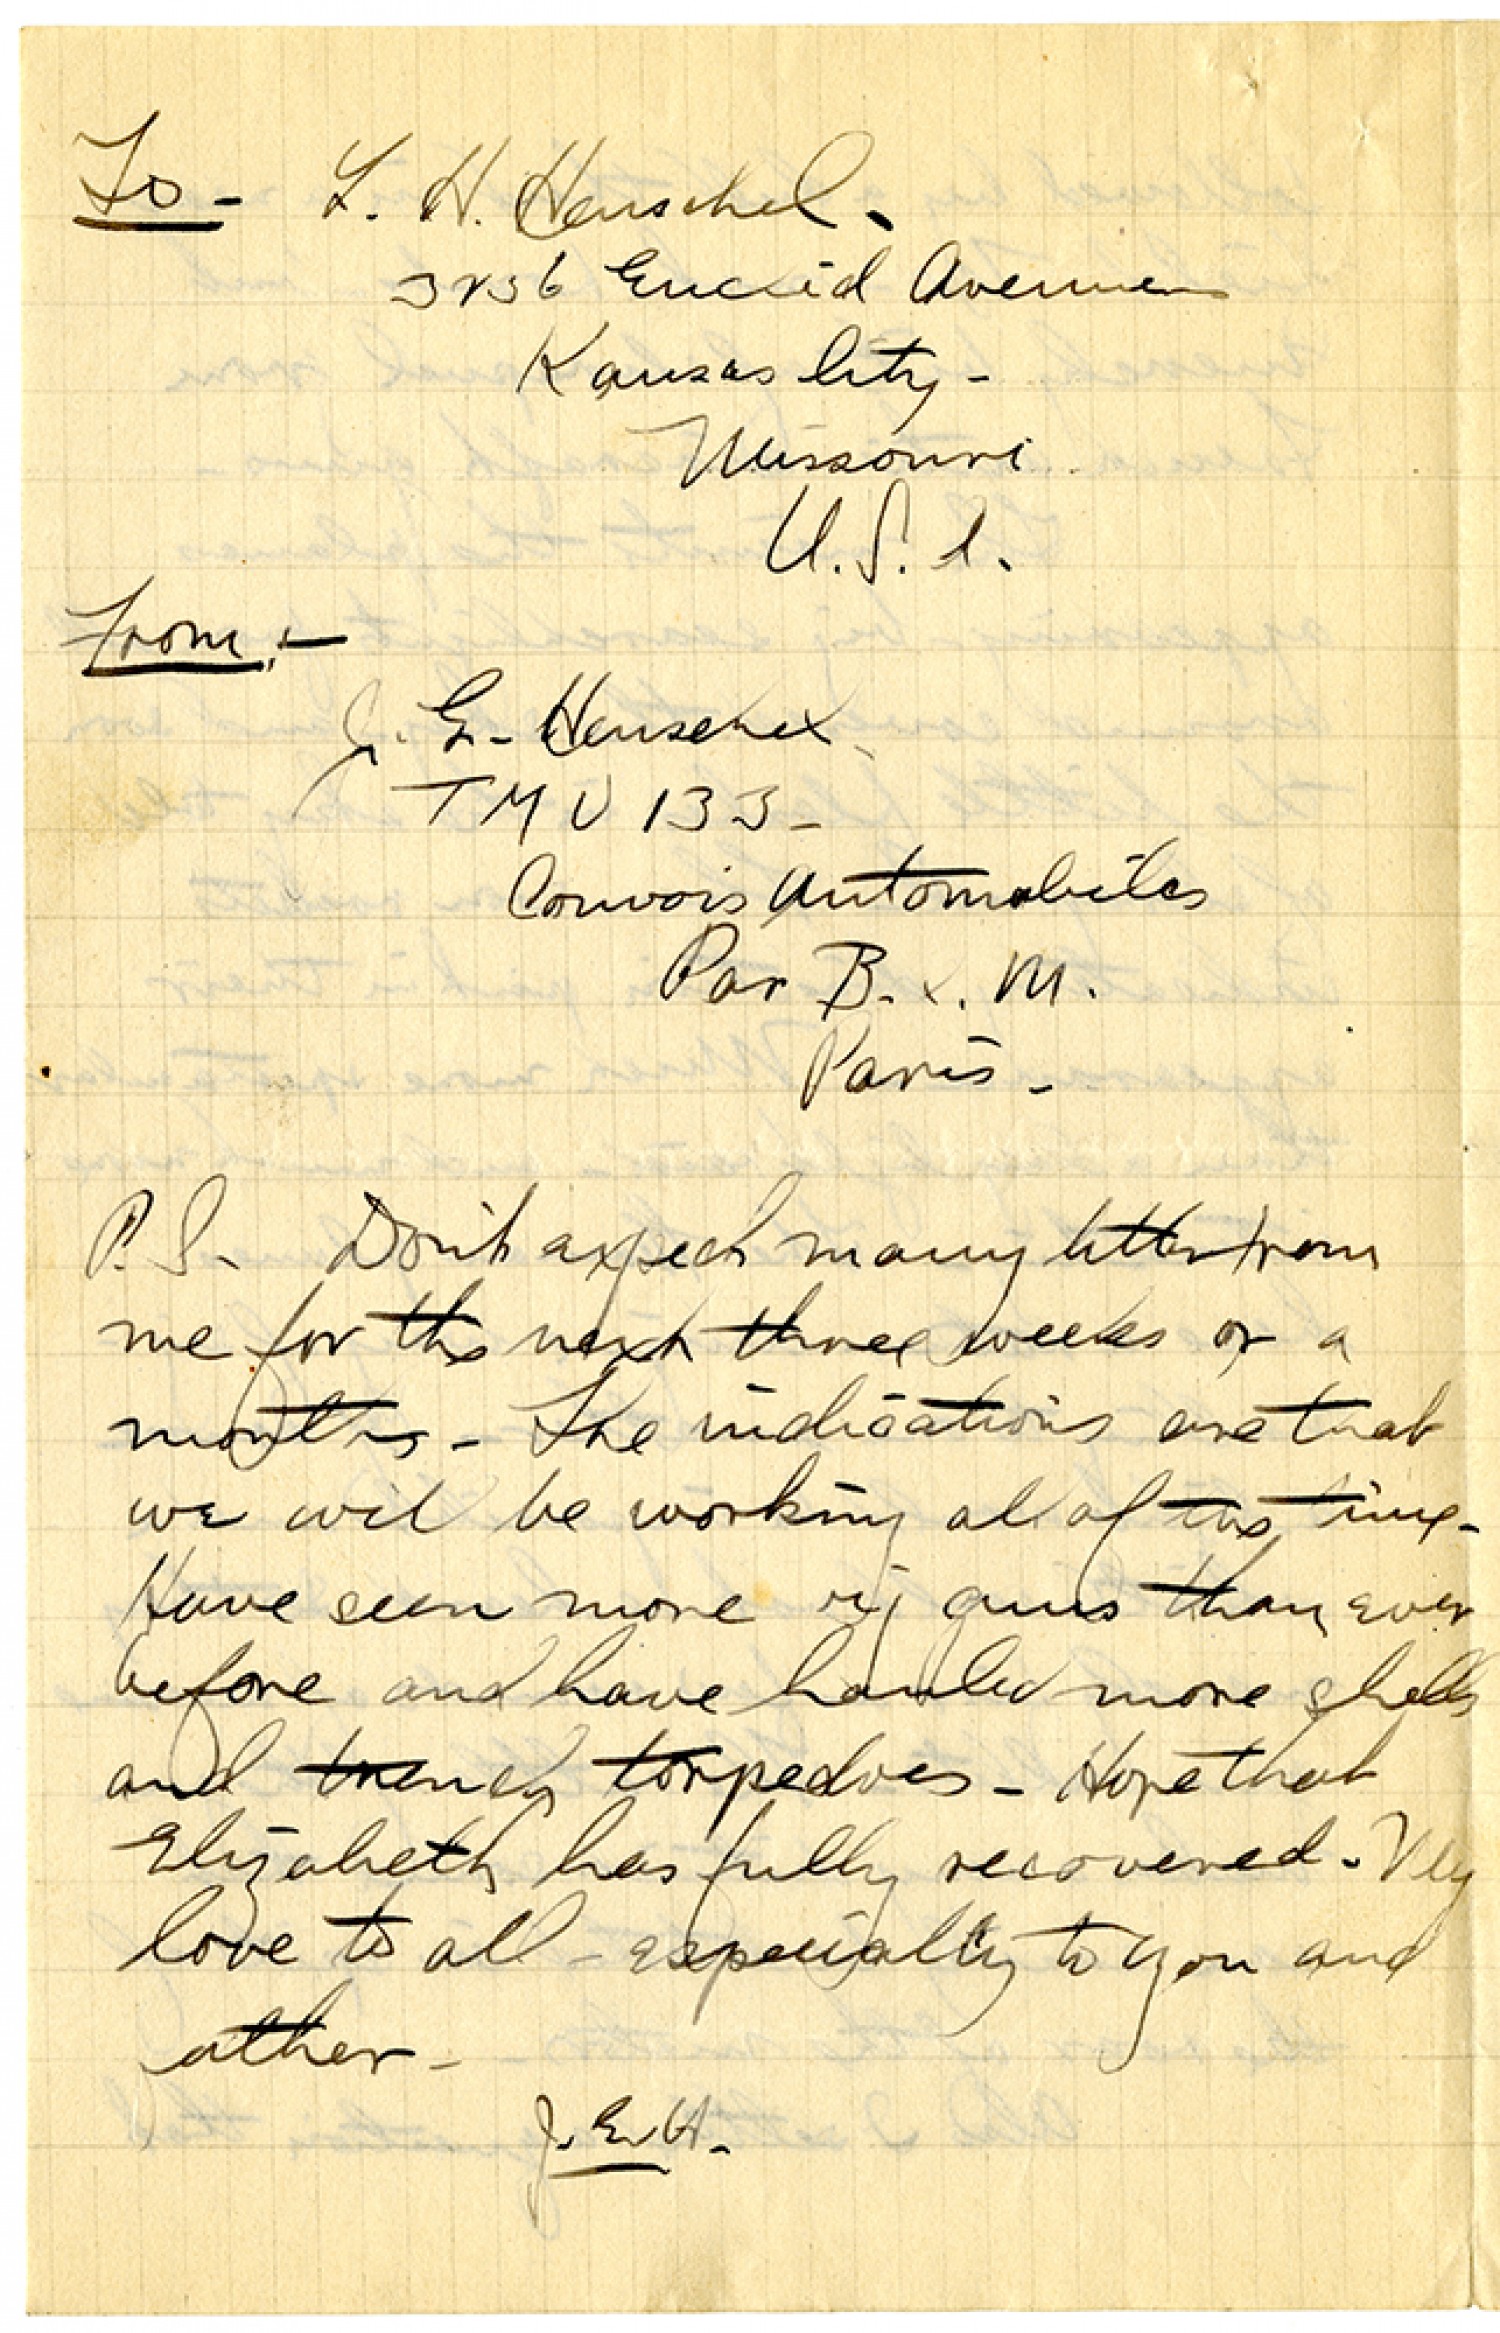 To- L. H. Henschel.
3236 Euclid Avenue
Kansas City-
Missouri
U.S.A.
From:-
J. E. Henschel
TMU 133-
Convois Automobiles
Par B.C.M.
Paris-
P.S. Don't expect many letter from
me for the next three weeks or a
months- The indications are that
we will be working all of the time-
Have seen more big guns than ever
before and have hauled more shells
and trench torpedoes- Hope that
Elizabeth has fully recovered-
love to all- especially to you and
J.E.H.